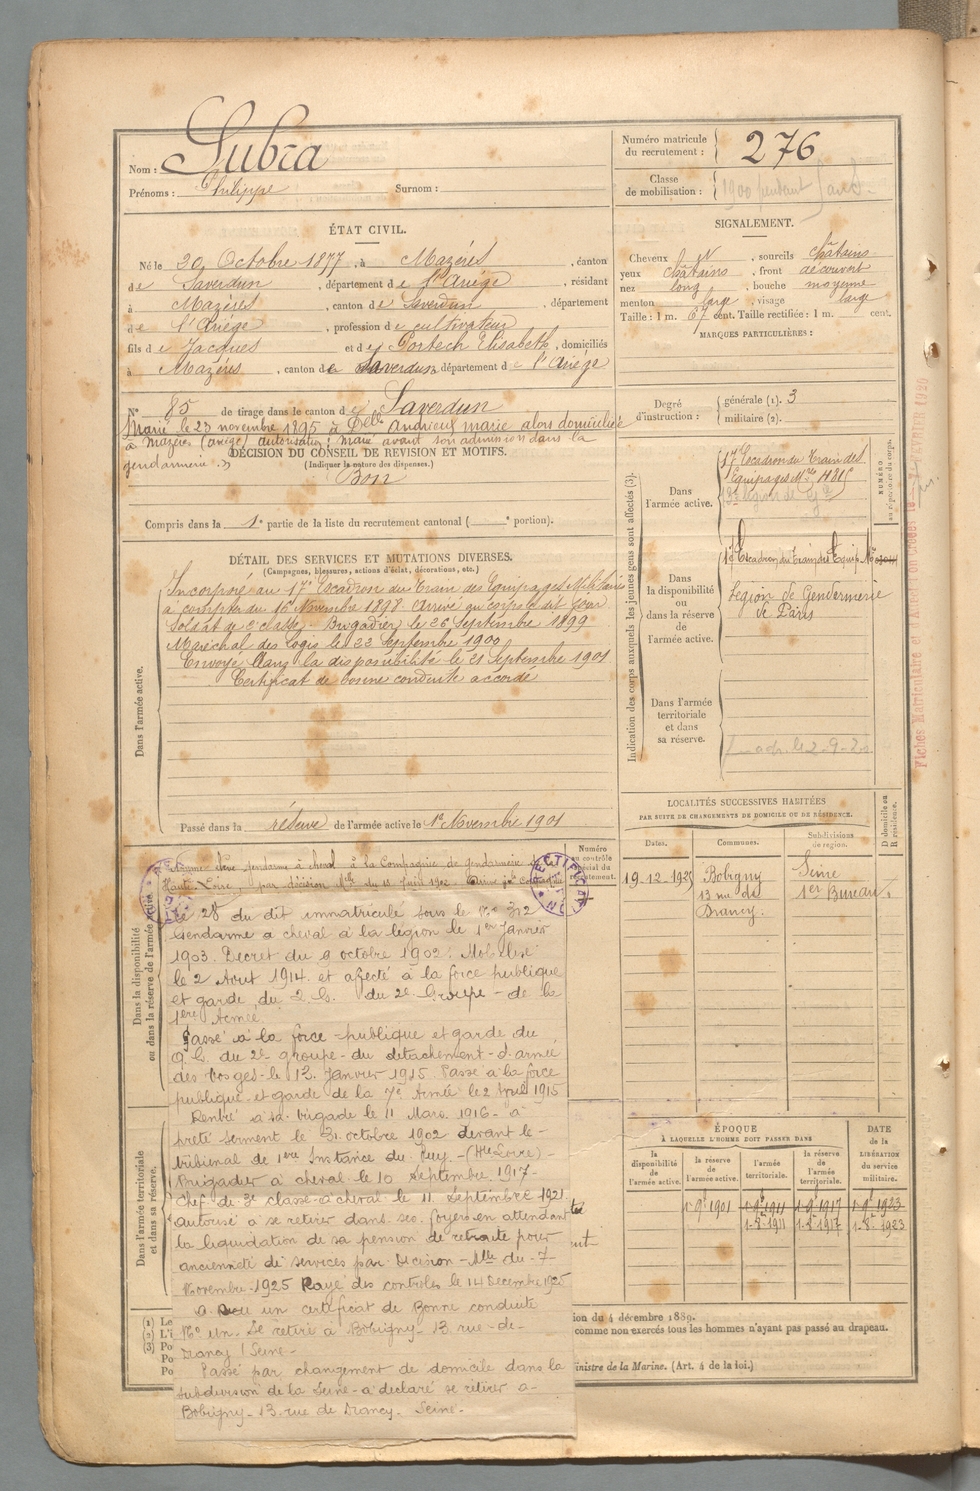 Nom : Subra
Prénoms : Philippe Surnom :
Numéro matricule du recrutement : 276
Classe de mobilisation : 1900
ÉTAT CIVIL.
Né le 20 Octobre 1877, à Mazères, canton
de Saverdun, département de l'Ariège, résidant
à Mazères, canton de Saverdun, département
de l'Ariège, profession de cultivateur
fils de Jacques et de Portech Elisabeth, domiciliés
à Mazères, canton de Saverdun, département de l'Ariège
SIGNALEMENT.
Cheveux N, sourcils châtains
yeux châtains, front découvert
nez long, bouche moyenne
menton large, visage large
Taille : 1 m. 67 cent. Taille rectifiée : 1 m. cent.
MARQUES PARTICULIÈRES :
N° 85 de tirage dans le canton de Saverdun
Marié le 23 novembre 1895 à Delle Andrieu marie alors domiciliée
à Mazères (ariège) autorisation : marié avant son admission dans la
gendarmerie.
DÉCISION DU CONSEIL DE REVISION ET MOTIFS.
(Indiquer la nature des dispenses.)
Bon
Compris dans la 1e partie de la liste du recrutement cantonal ( portion).
Degré d'instruction : générale (1). 3
militaire (2).
DÉTAIL DES SERVICES ET MUTATIONS DIVERSES.
(Campagnes, blessures, actions d'éclat, décorations, etc.)
Dans l'armée active.
Incorporé au 17e Escadron du Train des Equipages Militaires
à compter du 16 Novembre 1898. Arrivé au corps le dit jour
Soldat de 2e classe. Brigadier le 26 Septembre 1899
Maréchal des logis le 22 Septembre 1900
Envoyé dans la disponibilité le 21 Septembre 1901
Certificat de bonne conduite accordé
Passé dans la réserve de l'armée active le 1er Novembre 1901
Indication des corps auxquels les jeunes gens sont affectés (3).
NUMÉRO au répertoire du corps.
Dans l'armée active.
17e Escadron du Train des
Equipages Mres
Dans la disponibilité ou dans la réserve de l'armée active.
17e Escadron du Train des Equip. Mres
Légion de Gendarmerie
de Paris
Dans l'armée territoriale et dans sa réserve.
Fiches Matriculaire et FÉVRIER 1920
LOCALITÉS SUCCESSIVES HABITÉES
PAR SUITE DE CHANGEMENTS DE DOMICILE OU DE RÉSIDENCE.
Dates. Communes. Subdivisions de région. D domicile ou R résidence.
19-12-1925 Bobigny Seine
13 rue de 1er Bureau
Drancy.
Dans la disponibilité ou dans la réserve de l'armée active.
Numéro au contrôle spécial du recrutement.
Nommé élève gendarme à cheval à la Compagnie de gendarmerie de la
Haute-Loire, par décision Mlle du 18 Juin 1902.
RECTIFICATION
Le 28 du dit immatriculé sous le No 312
Gendarme à cheval à la légion le 1er Janvier
1903. Décret du 9 octobre 1902. Mobilisé
le 2 Aout 1914. et affecté à la force publique
et garde du Q. G. du 2e Groupe - de la
1ère Armée
Passé à la force publique et garde du
Q. G. du 2e groupe - du détachement d'armée
des Vosges le 13 Janvier 1915 Passé à la force
publique et garde de la 7e Armée le 2 Avril 1915
Rentré à sa brigade le 11 Mars 1916 - a
preté serment le 31 octobre 1902 devant le
tribunal de 1ère Instance du Puy - (Hte Loire) -
Brigadier à cheval le 10 Septembre 1917
Chef de 3e classe à cheval le 11 Septembre 1921
autorisé à se retirer dans ses foyers en attendant
la liquidation de sa pension de retraite pour
ancienneté de services par Décision Mlle du 7
Novembre 1925 Rayé des controles le 14 Decembre 1925
a reçu un certificat de Bonne conduite
No un. Se retire à Bobigny 13 rue de
Drancy (Seine-
Passé par changement de domicile dans la
subdivision de la Seine - a déclaré se retirer à
Bobigny - 13 rue de Drancy - Seine -
Dans l'armée territoriale et dans sa réserve.
ÉPOQUE
À LAQUELLE L'HOMME DOIT PASSER DANS
la disponibilité de l'armée active. la réserve de l'armée active. l'armée territoriale. la réserve de l'armée territoriale.
DATE de la LIBÉRATION du service militaire.
1-9e 1901 1-9e 1911 1-9-1917 1-9e 1923
1-8-1911 1-8-1917 1-8-1923
(1) Le
(2) L'i
(3) Po
Po
Po
ion du 4 décembre 1889.
comme non exercés tous les hommes n'ayant pas passé au drapeau.
inistre de la Marine. (Art. 4 de la loi.)